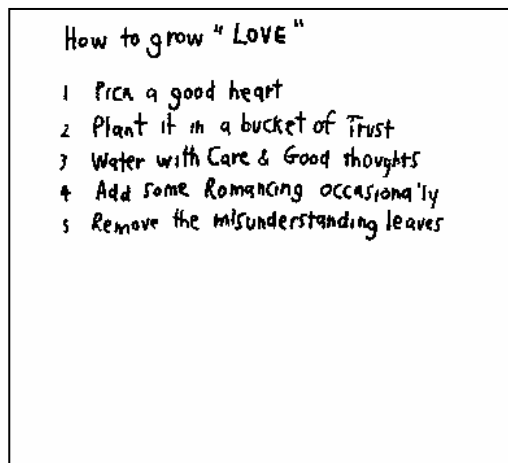 How to grow "LOVE"
1 Pick a good heart
2 Plant it in a bucket of Trust
3 Water with Care & Good thoughts
4 Add some Romancing occasionally
5 Remove the misunderstanding leaves